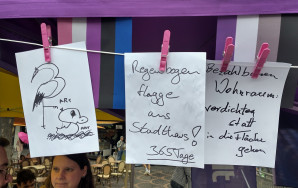 ART
Regenbogen
flagge
am
Stadthaus!
365 Tage
Bezahlbaren
Wohnraum:
verdichten
statt
in die Fläche
gehen